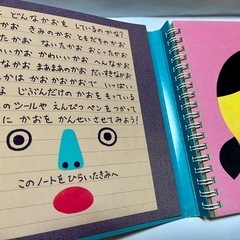 どんなかおを しているのかな?
かお きみのかお ともだちのかお
なかお ないたかお おこったかお
いいかお かわいいかお へんなかお
なかお まあまあのかお だいすきなかお
かは かお かおかおで いっぱい
よ じぶんだけの かおを もっている
のツールや えんぴつ ペンをつかって
に かおを かんせいさせてみよう!
このノートをひらいたきみへ